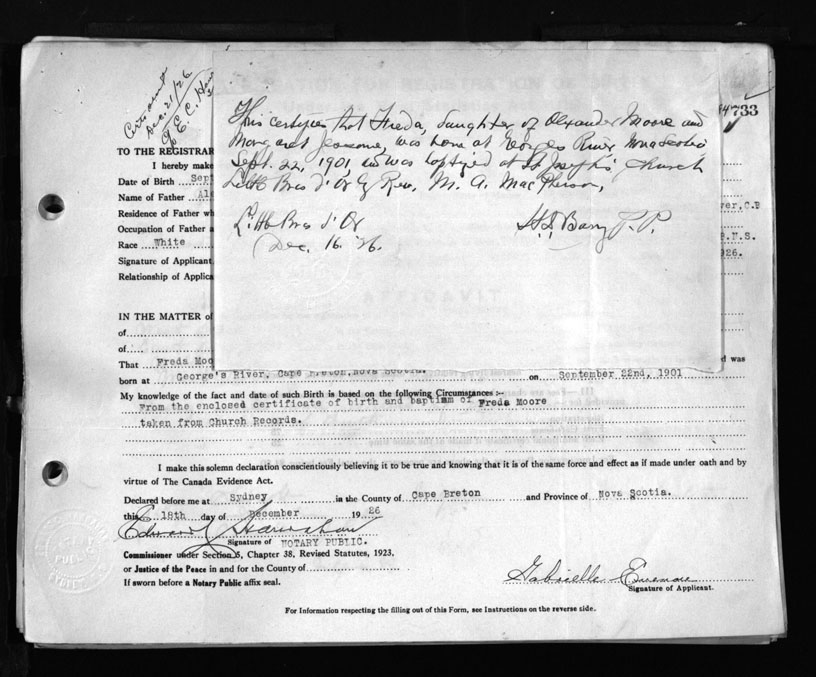 Dec. 21/26
E. C. H
733
This certifies that Freda, daughter of Alexander Moore and
Margaret was born at Georges River Nova Scotia
Sept. 22, 1901 was baptized at St Joseph's Church
Little Bras d'Or by Rev. M. A. MacPherson,
Little Bras d'Or
Dec. 16 '26.
Barry P. P.
TO THE REGISTRAR
I hereby make
Date of Birth Sept
Name of Father Al
Residence of Father wh
ver, C.B
Occupation of Father a
Race White
N.S.
Signature of Applicant
926.
Relationship of Applica
IN THE MATTER of
of
of
That Freda Moo
d was
born at George's River, Cape Breton, Nova Scotia. on September 22nd, 1901
My knowledge of the fact and date of such Birth is based on the following Circumstances :—
From the enclosed certificate of birth and baptism of Freda Moore
taken from Church Records.
I make this solemn declaration conscientiously believing it to be true and knowing that it is of the same force and effect as if made under oath and by
virtue of The Canada Evidence Act.
Declared before me at Sydney in the County of Cape Breton and Province of Nova Scotia.
this 18th day of December 19 26
Edward
Signature of NOTARY PUBLIC.
Commissioner under Section 5, Chapter 38, Revised Statutes, 1923.
or Justice of the Peace in and for the County of
Gabrielle
If sworn before a Notary Public affix seal.
Signature of Applicant.
For Information respecting the filling out of this Form, see Instructions on the reverse side.